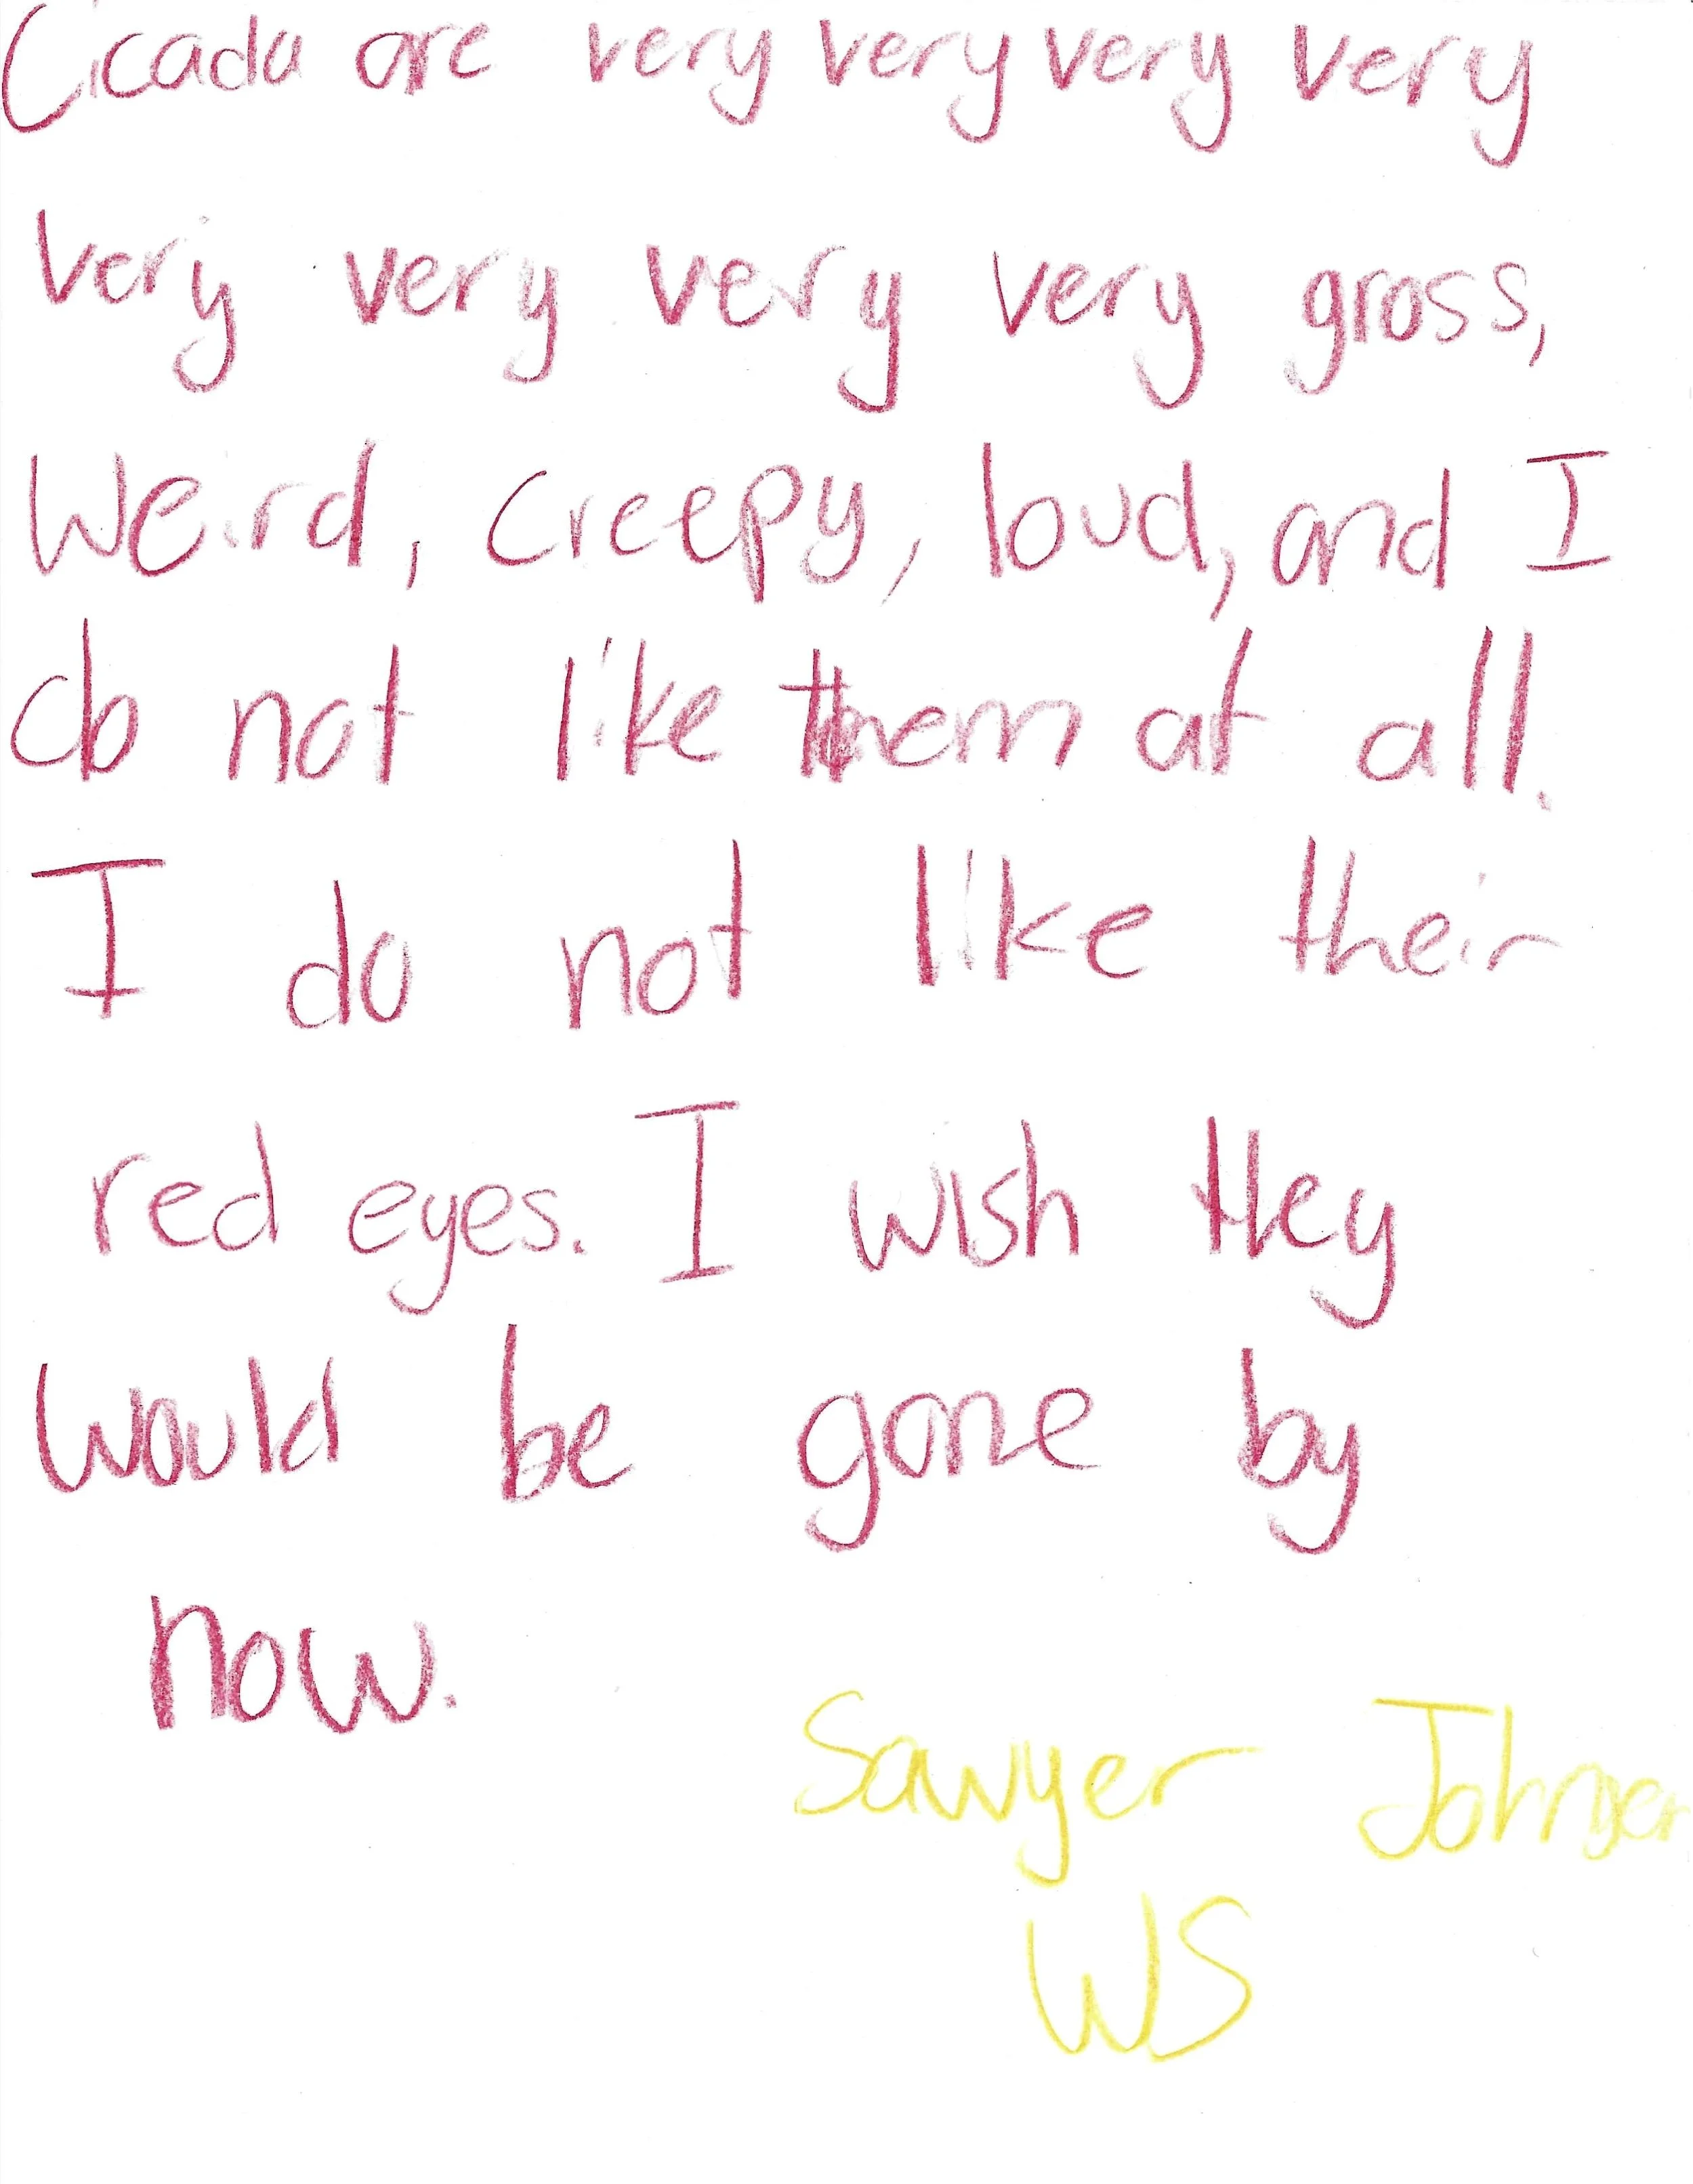 Cicada are very very very very
very very very very gross,
Weird, creepy, loud, and I
do not like them at all.
I do not like their
red eyes. I wish they
would be gone by
now.
Sawyer
WS